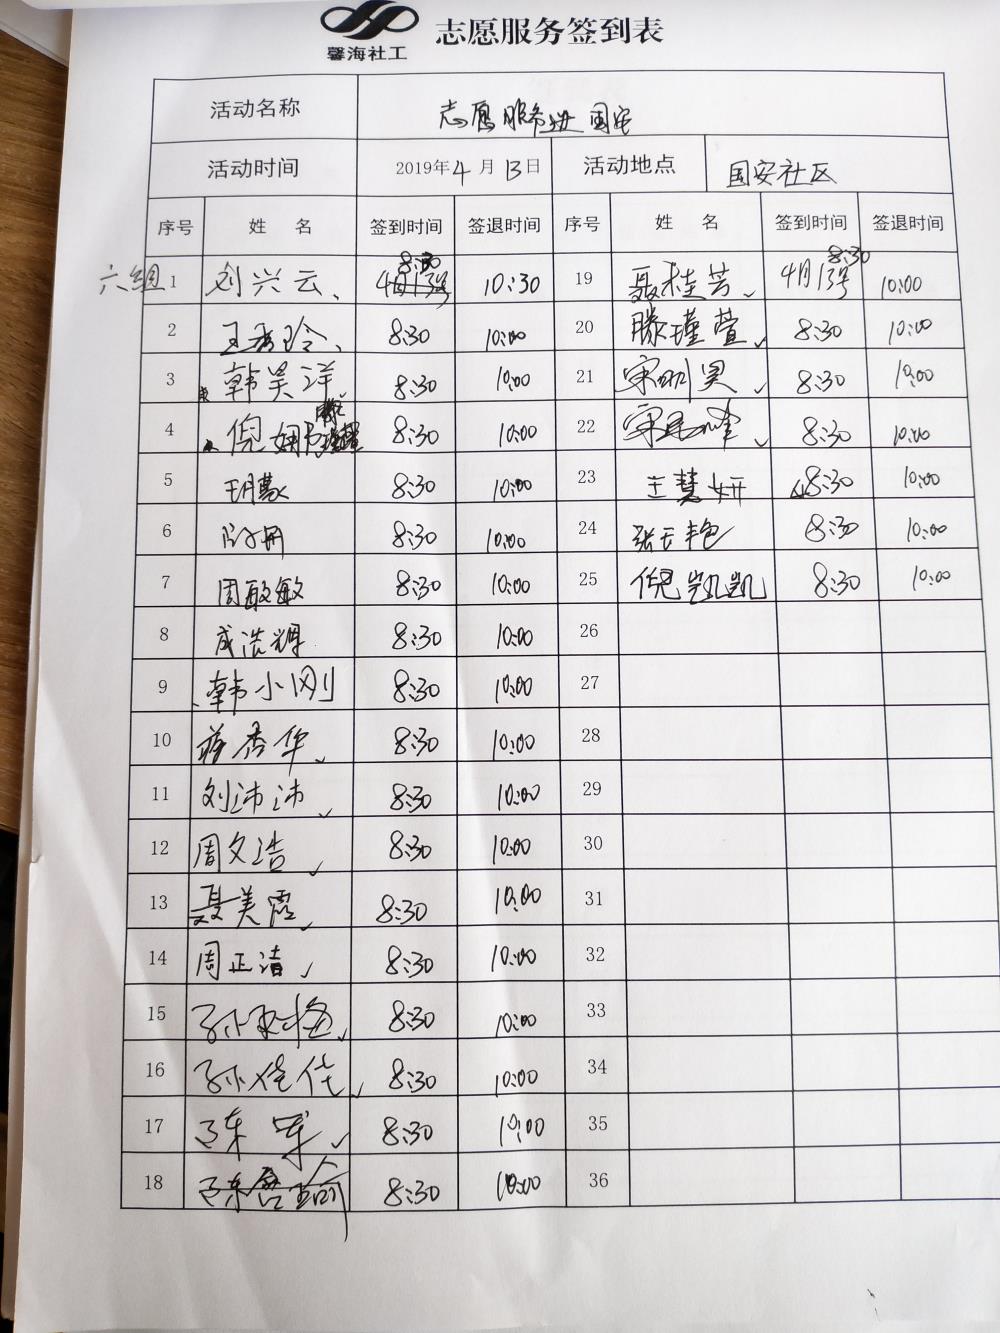 馨海社工
志愿服务签到表
活动名称 志愿服务进国安
活动时间 2019年4月13日 活动地点 国安社区
序号 姓名 签到时间 签退时间 序号 姓名 签到时间 签退时间
六组 1 刘兴云 4月13号 8:30 10:30 19 聂桂芳 4月13号 8:30 10:00
2 王秀玲 8:30 10:00 20 滕瑾萱 8:30 10:00
3 韩昊洋 8:30 10:00 21 宋明昊 8:30 10:00
4 倪娴 8:30 10:00 22 8:30 10:00
5 8:30 10:00 23 王慧妍 8:30 10:00
6 8:30 10:00 24 张玉艳 8:30 10:00
7 周敏敏 8:30 10:00 25 倪凯凯 8:30 10:00
8 成浩辉 8:30 10:00 26
9 韩小刚 8:30 10:00 27
10 蒋秀华 8:30 10:00 28
11 刘沛沛 8:30 10:00 29
12 周文浩 8:30 10:00 30
13 聂美霞 8:30 10:00 31
14 周正洁 8:30 10:00 32
15 孙 梅 8:30 10:00 33
16 孙佳佳 8:30 10:00 34
17 陈军 8:30 10:00 35
18 陈 瑜 8:30 10:00 36